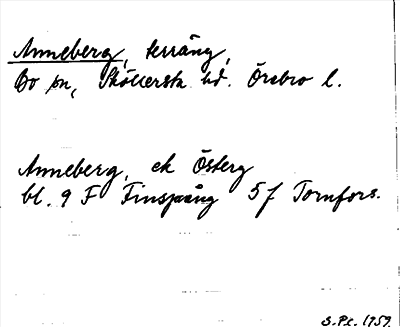 Anneberg, terräng,
Bo sn, Sköllersta hd. Örebro l.
Anneberg, ek Österg
bl. 9 F Finspång 5 f Tornfors.
S.Pc. 1959.